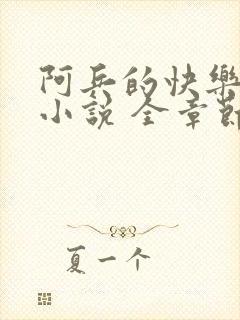 阿兵的快樂
小說 全章節
夏一个